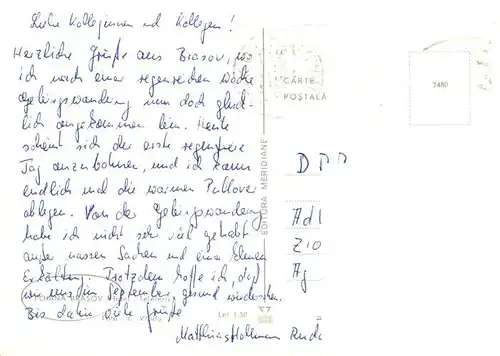 Liebe Kolleginnen und Kollegen!
Herzliche Grüße aus Brasov, wo
ich nach einer regenreichen Woche
Gebirgswanderung nun doch glück-
lich angekommen bin. Heute
scheint sich der erste regenfreie
Tag anzubahnen, und ich kann
endlich mal die warmen Pullover
ablegen. Von der Gebirgswanderung
habe ich nicht sehr viel gehabt
außer nassen Sachen und einer kleinen
Erkältung. Trotzdem hoffe ich, daß
wir uns im September gesund wiedersehen.
Bis dahin viele Grüße
Matthias
POIANA BRAȘOV
CARTE
POȘTALĂ
EDITURA MERIDIANE
Lei 1,50
7480
DPP
Adl
Zio
Ag